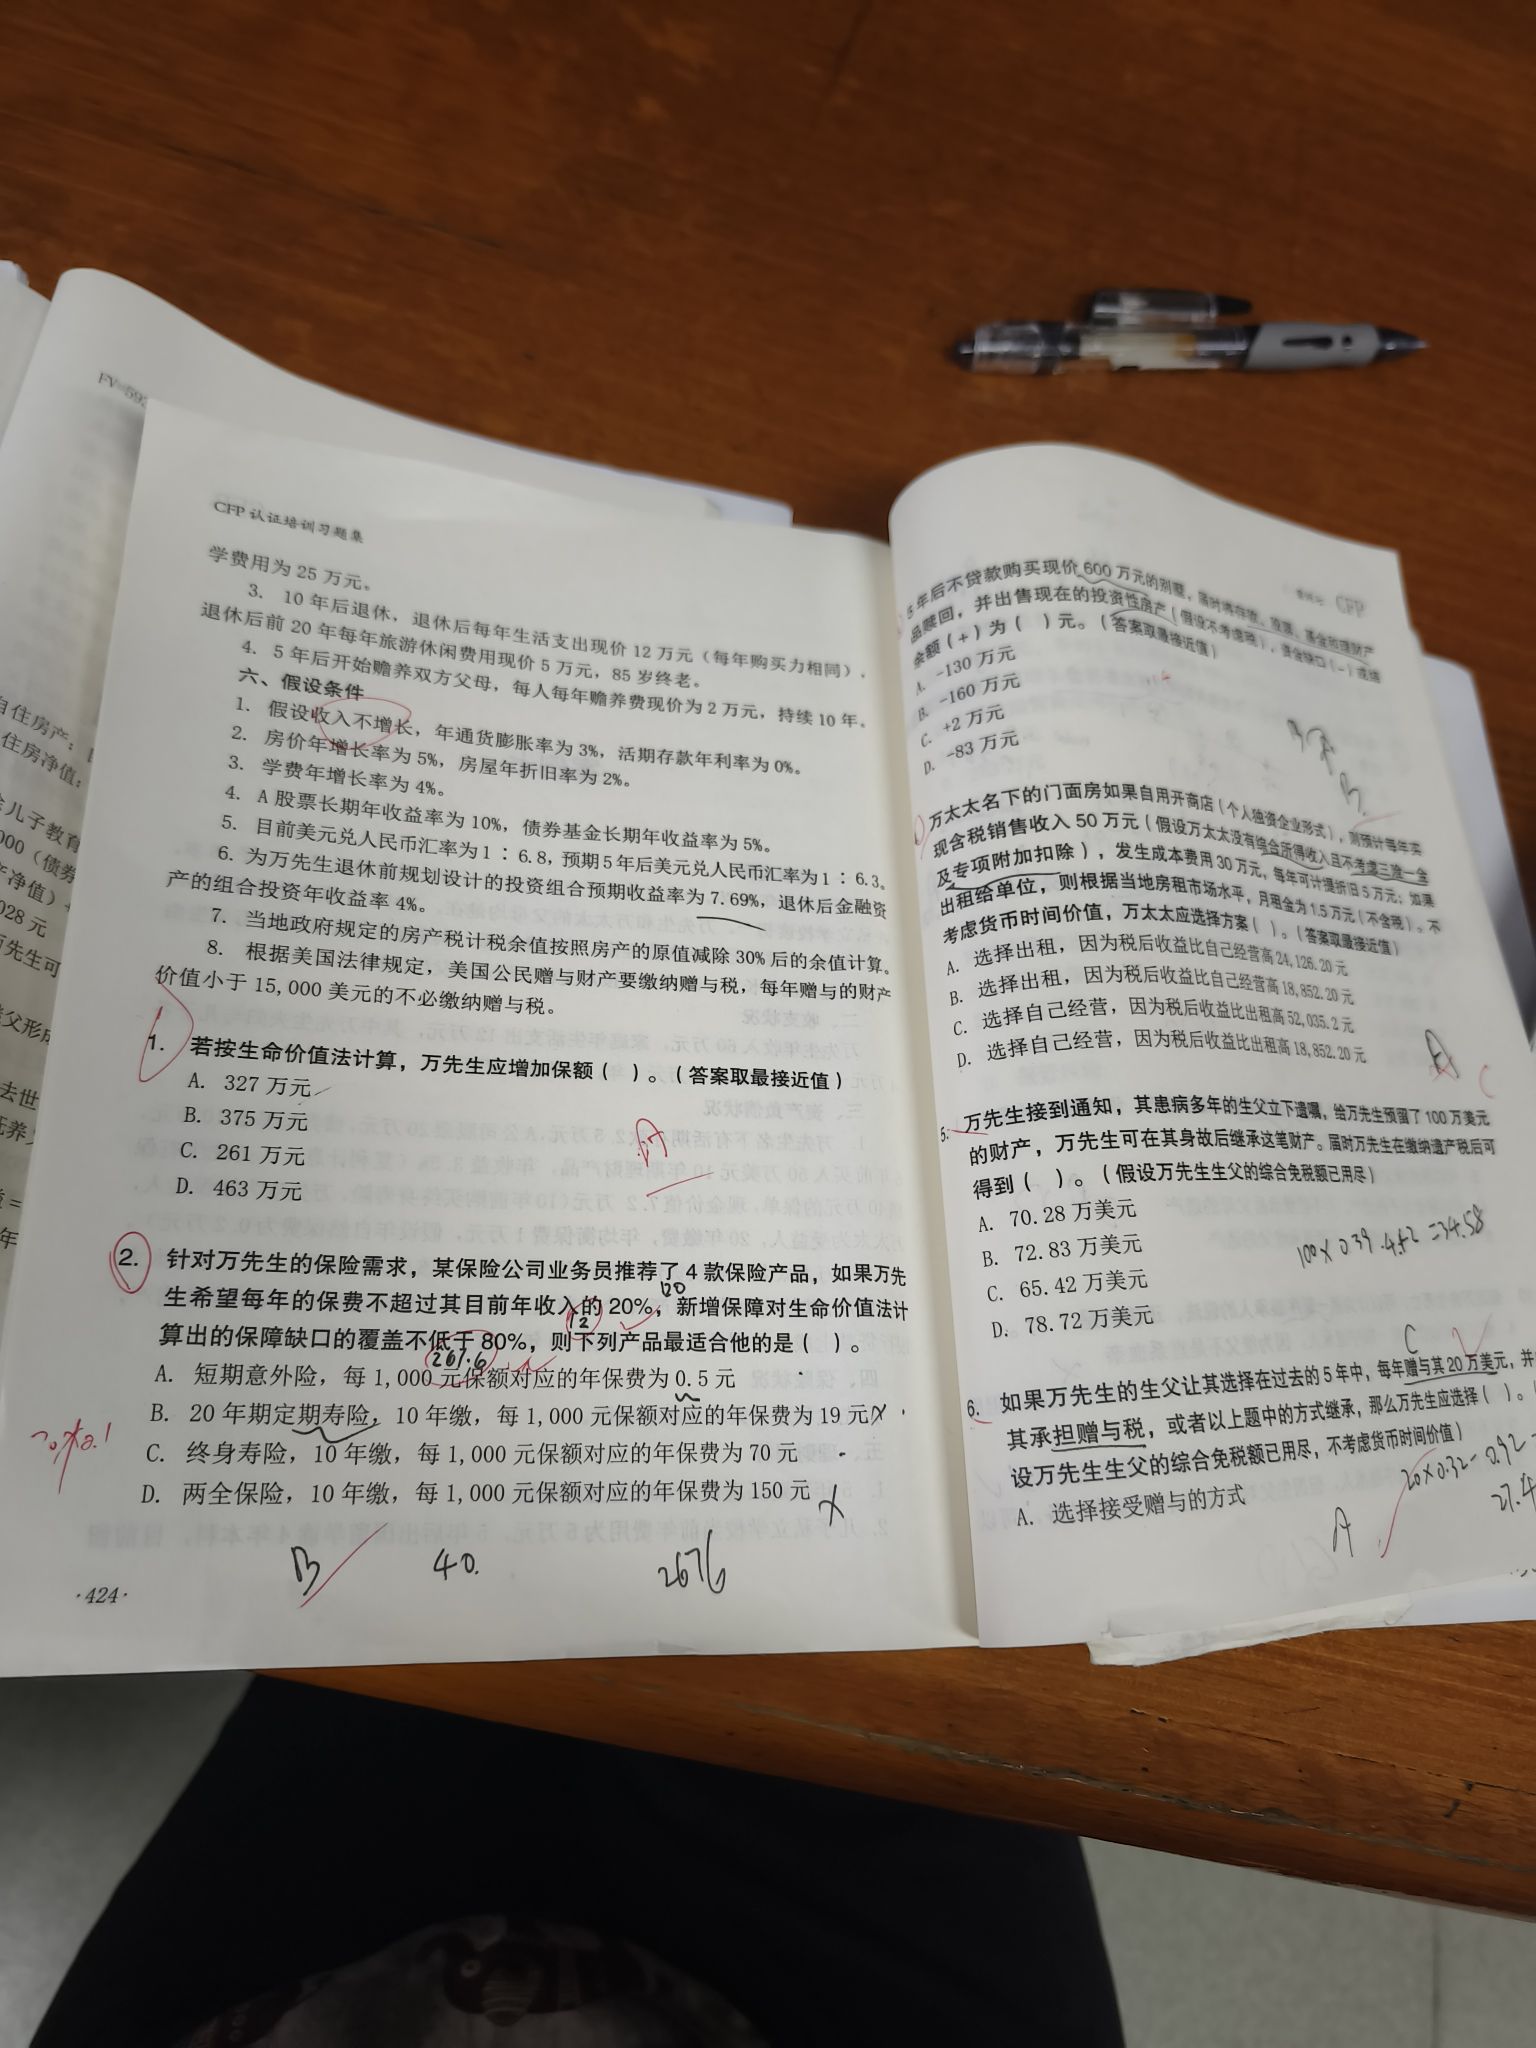 CFP 认证培训习题集
学费用为 25 万元。
3. 10 年后退休，退休后每年生活支出现价 12 万元（每年购买力相同），
退休后前 20 年每年旅游休闲费用现价 5 万元，85 岁终老。
4. 5 年后开始赡养双方父母，每人每年赡养费现价为 2 万元，持续 10 年。
六、假设条件
1. 假设收入不增长，年通货膨胀率为 3%，活期存款年利率为 0%。
2. 房价年增长率为 5%，房屋年折旧率为 2%。
3. 学费年增长率为 4%。
4. A 股票长期年收益率为 10%，债券基金长期年收益率为 5%。
5. 目前美元兑人民币汇率为 1∶6.8，预期 5 年后美元兑人民币汇率为 1∶6.3。
6. 为万先生退休前规划设计的投资组合预期收益率为 7.69%，退休后金融资
产的组合投资年收益率 4%。
7. 当地政府规定的房产税计税余值按照房产的原值减除 30% 后的余值计算。
8. 根据美国法律规定，美国公民赠与财产要缴纳赠与税，每年赠与的财产
价值小于 15,000 美元的不必缴纳赠与税。
1. 若按生命价值法计算，万先生应增加保额（ ）。（答案取最接近值）
A. 327 万元
B. 375 万元
C. 261 万元
D. 463 万元
A
2. 针对万先生的保险需求，某保险公司业务员推荐了 4 款保险产品，如果万先
生希望每年的保费不超过其目前年收入的 20%，新增保障对生命价值法计
12
算出的保障缺口的覆盖不低于 80%，则下列产品最适合他的是（ ）。
261.6
A. 短期意外险，每 1,000 元保额对应的年保费为 0.5 元
B. 20 年期定期寿险，10 年缴，每 1,000 元保额对应的年保费为 19 元
C. 终身寿险，10 年缴，每 1,000 元保额对应的年保费为 70 元
D. 两全保险，10 年缴，每 1,000 元保额对应的年保费为 150 元
B 40. 2676
·424·
CFP
5 年后不贷款购买现价 600 万元的别墅，届时将存款、股票、基金和理财产
品赎回，并出售现在的投资性房产（假设不考虑税），资金缺口（-）或结
余额（+）为（ ）元。（答案取最接近值）
A. -130 万元
B. -160 万元
C. +2 万元
D. -83 万元
B
万太太名下的门面房如果自用开商店（个人独资企业形式），则预计每年实
现含税销售收入 50 万元（假设万太太没有综合所得收入且不考虑三险一金
及专项附加扣除），发生成本费用 30 万元，每年可计提折旧 5 万元；如果
出租给单位，则根据当地房租市场水平，月租金为 1.5 万元（不含税）。不
考虑货币时间价值，万太太应选择方案（ ）。（答案取最接近值）
A. 选择出租，因为税后收益比自己经营高 24,126.20 元
B. 选择出租，因为税后收益比自己经营高 18,852.20 元
C. 选择自己经营，因为税后收益比出租高 52,035.2 元
D. 选择自己经营，因为税后收益比出租高 18,852.20 元
C
5. 万先生接到通知，其患病多年的生父立下遗嘱，给万先生预留了 100 万美元
的财产，万先生可在其身故后继承这笔财产。届时万先生在缴纳遗产税后可
得到（ ）。（假设万先生生父的综合免税额已用尽）
A. 70.28 万美元
B. 72.83 万美元
C. 65.42 万美元
D. 78.72 万美元
C
6. 如果万先生的生父让其选择在过去的 5 年中，每年赠与其 20 万美元，并
其承担赠与税，或者以上题中的方式继承，那么万先生应选择（ ）。
设万先生生父的综合免税额已用尽，不考虑货币时间价值）
A. 选择接受赠与的方式
A